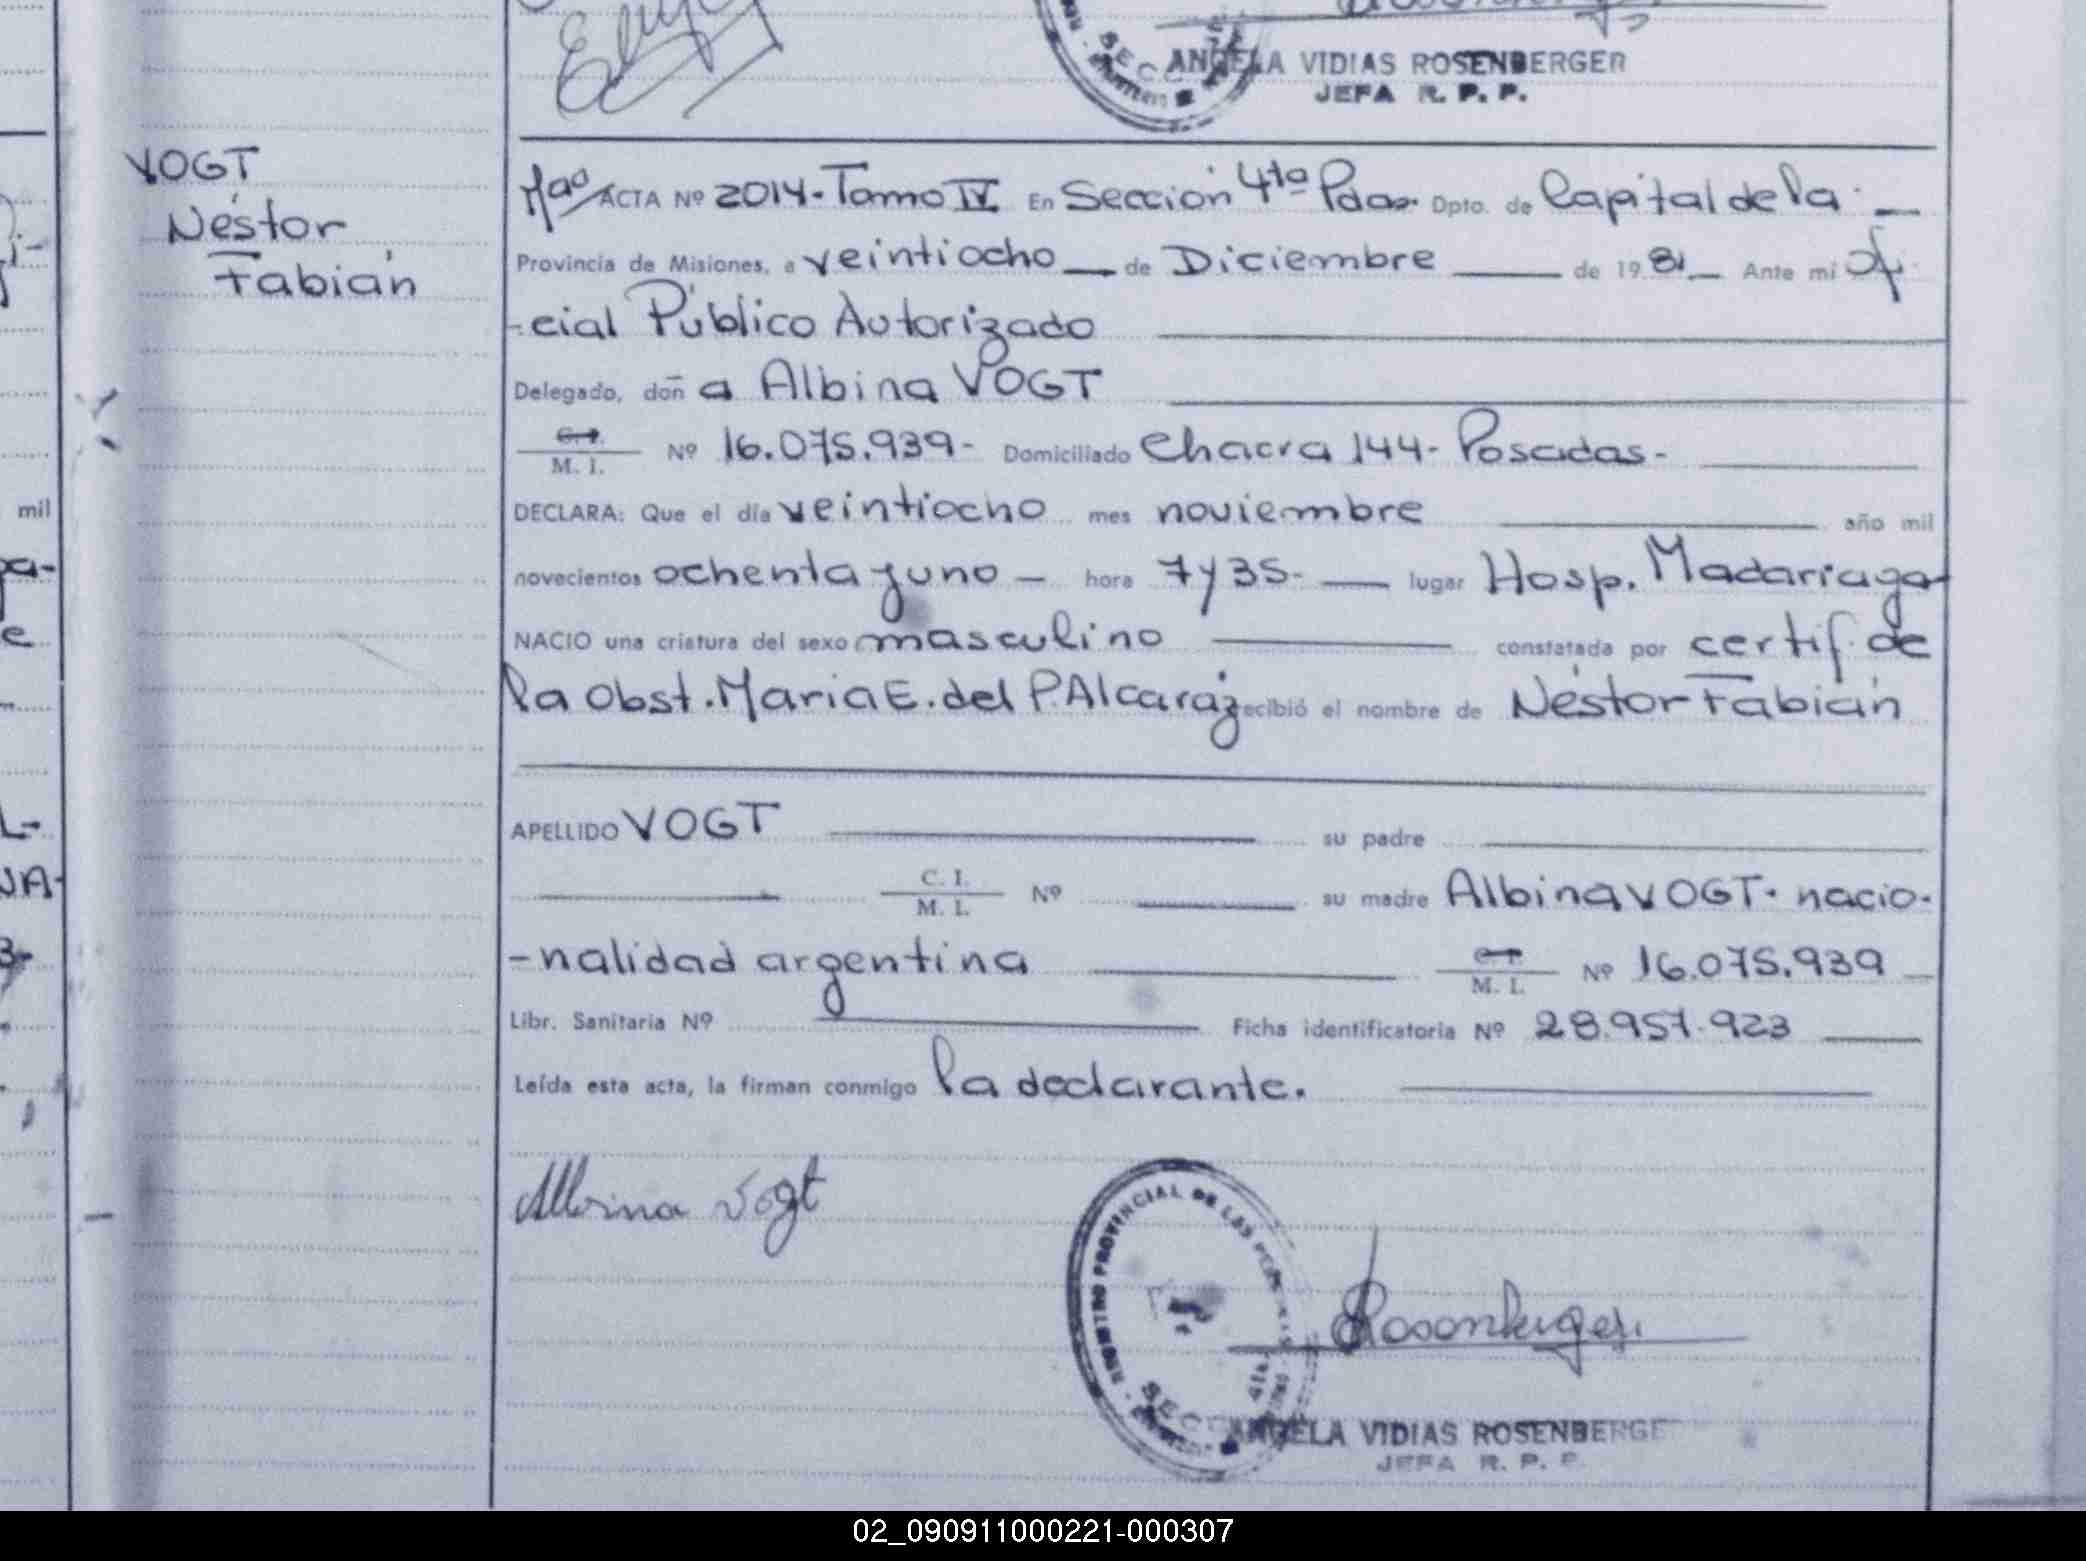 ANGELA VIDIAS ROSENBERGER
JEFA R. P. P.
VOGT
Néstor
Fabián
ACTA Nº 2014 - Tomo IV En Sección 4ta Pdas. Dpto. de Capital de la
Provincia de Misiones, a veintiocho de Diciembre de 1981 Ante mi Ofi
-cial Público Autorizado
Delegado, doña Albina VOGT
C. I.
M. I. Nº 16.075.939- Domiciliado Chacra 144- Posadas-
DECLARA: Que el día veintiocho mes noviembre año mil
novecientos ochenta y uno - hora 7 y 35- lugar Hosp. Madariaga
NACIO una criatura del sexo masculino constatada por certif. de
la Obst. Maria E. del P. Alcaraz recibió el nombre de Néstor Fabián
APELLIDO VOGT su padre
C. I.
M. I. Nº su madre Albina VOGT. nacio-
-nalidad argentina C. I.
M. I. Nº 16.075.939
Libr. Sanitaria Nº Ficha identificatoria Nº 28.957.923
Leída esta acta, la firman conmigo la declarante.
Albina Vogt
REGISTRO PROVINCIAL DE LAS PERSONAS
SECC 4ta.
Rosenberger
ANGELA VIDIAS ROSENBERGE
JEFA R. P. P.
02_090911000221-000307